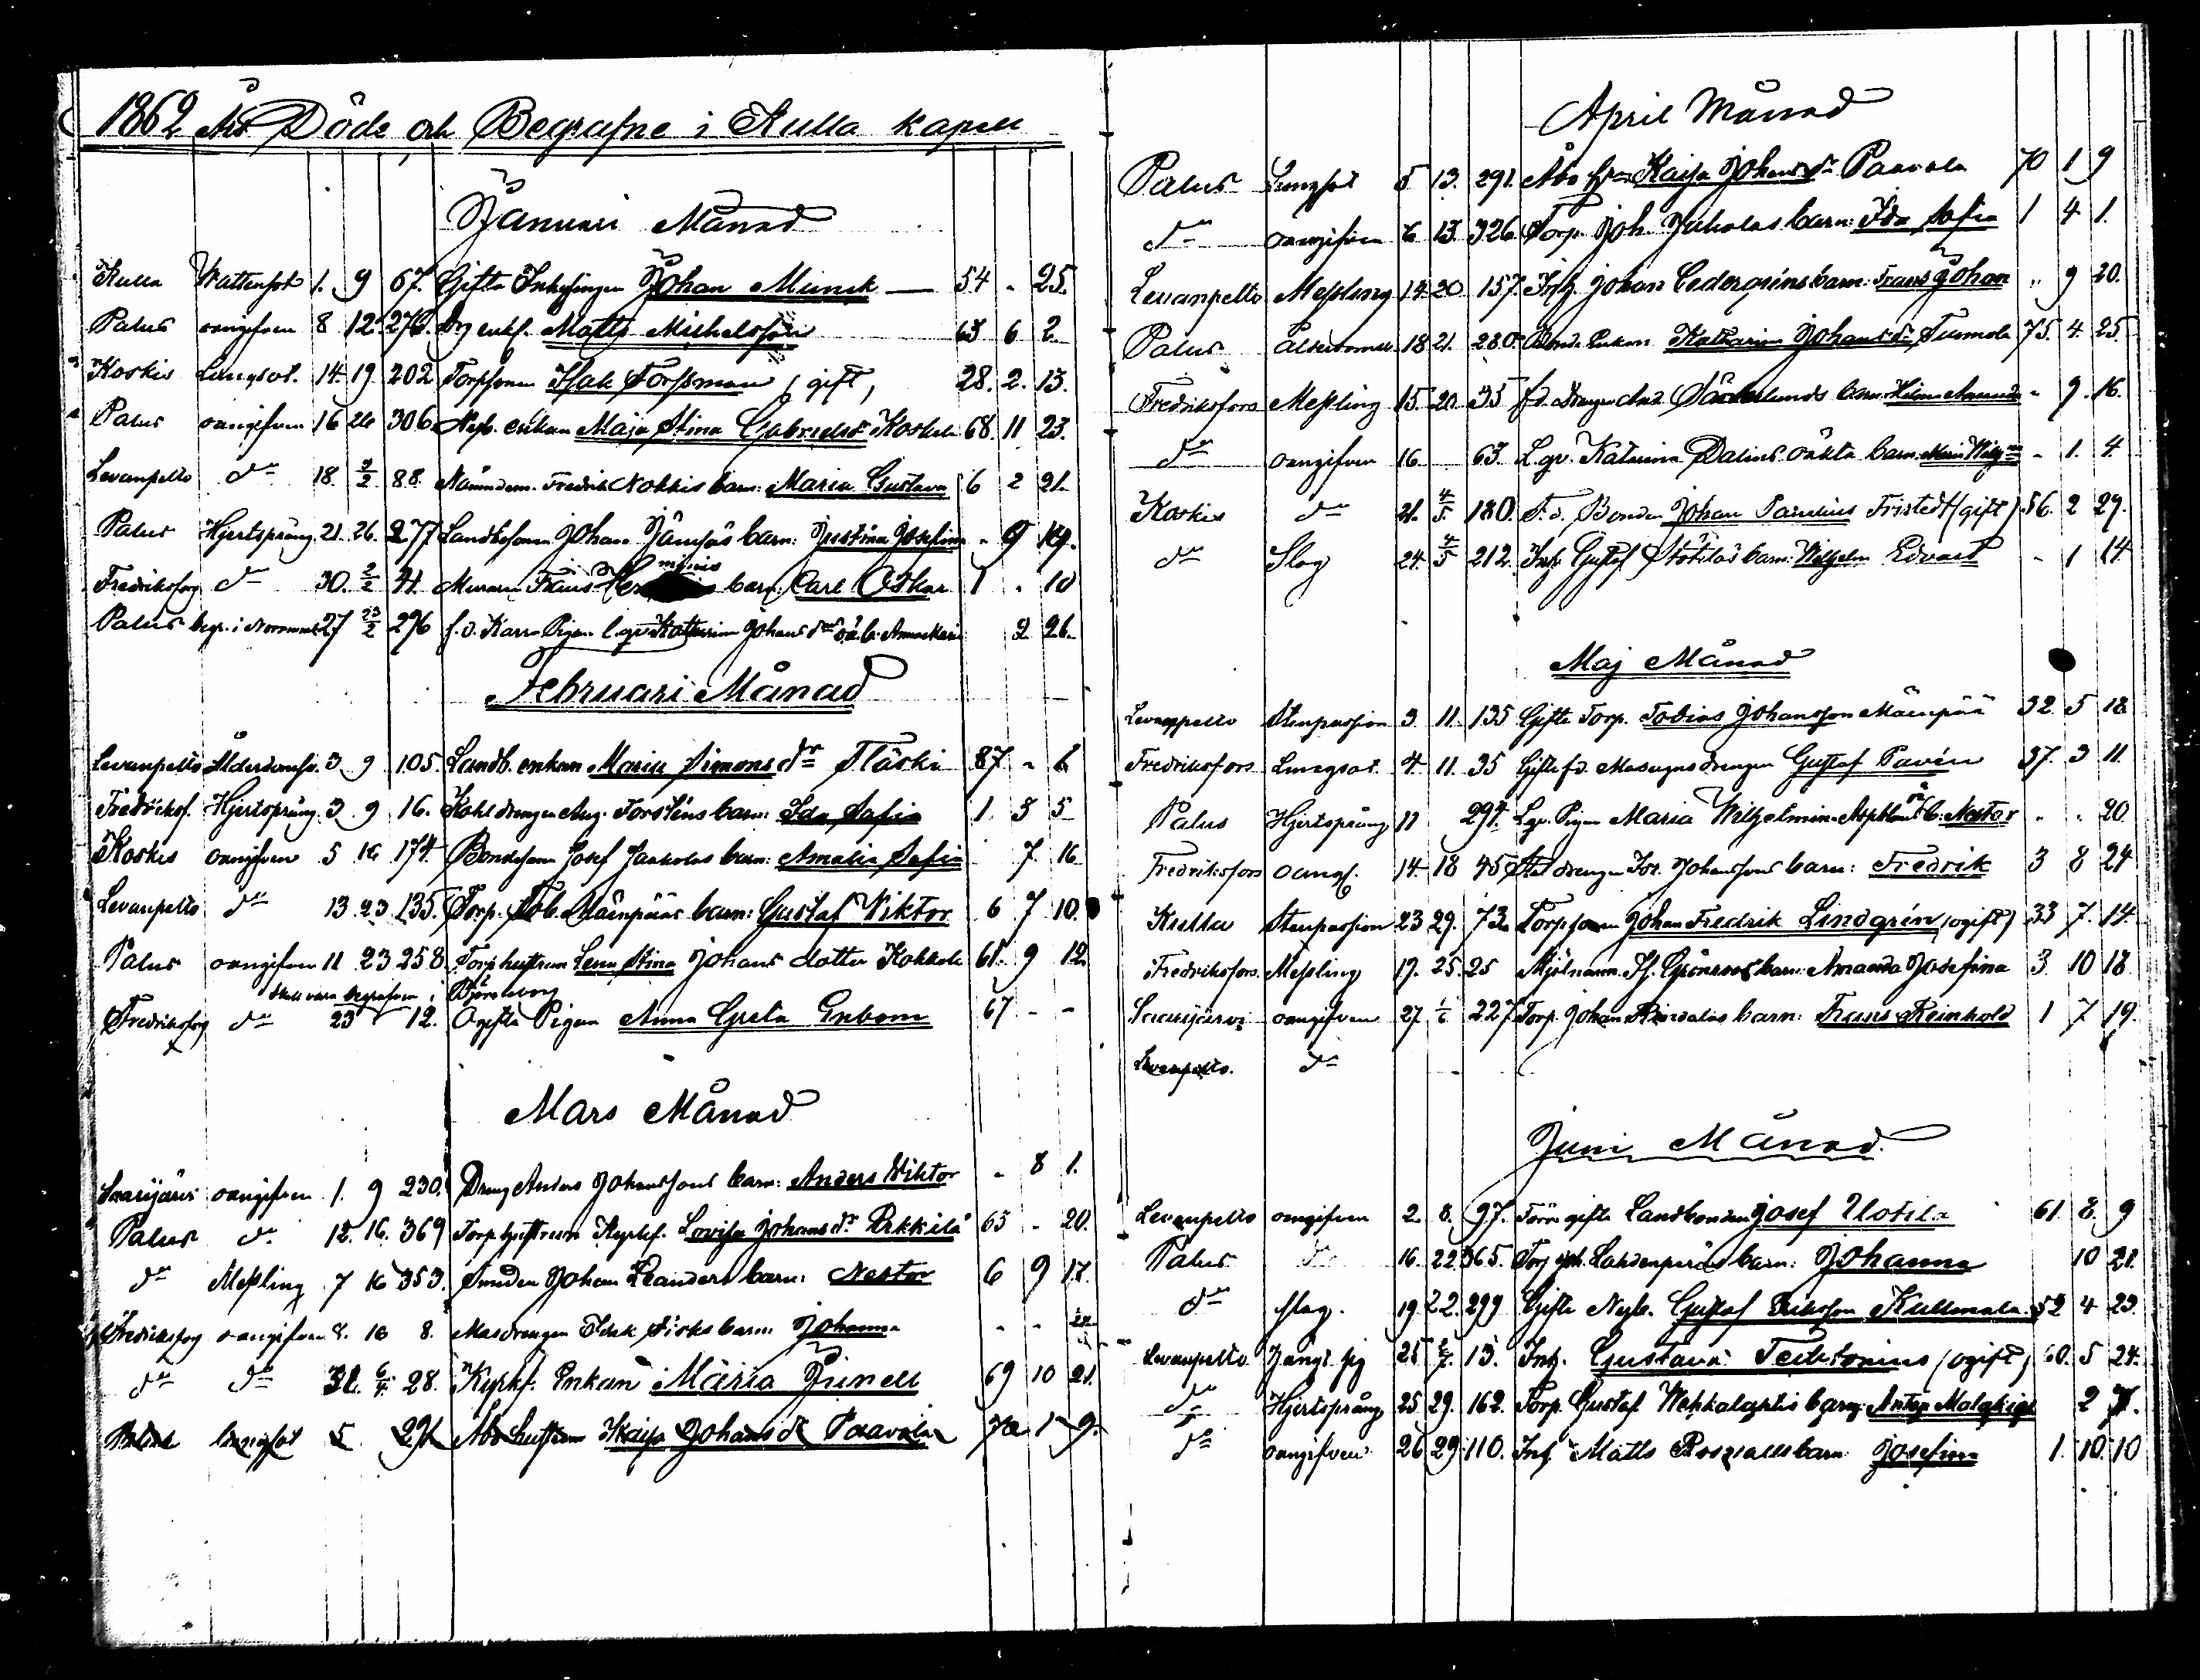 1862 Års Döde och Begrafne i Kulla kapell
Januari Månad
Kulla Wattensot 1. 9 67. Gifte Inhysingen Johan Munck — 54 - 25.
Palus oangifven 8 12. 276. Matts Michelsson 63 6 2.
Koskis Lungsot. 14. 19 202 Torpsonen Isak Forssman (gift) 28. 2. 13.
Palus oangifven 16 26 306 Nyb. enkan Maja Stina Gabrielsdr Koskela 68. 11 23.
Levanpelto do 18. 2/2 88. Nämndem. Fredrik Nokkis barn: Maria Gustava 6 2 21.
Palus Hjertsprång 21. 26. 277 Landbosonen Johan Jämsäs barn: Justina Josefina - 9 19.
Fredriksfors do 30. 2/2 41. Muraren Frans barn: Carl Oskar 1 . 10
Palus begr. i Norrmark 27 23/2 296 f.d. Karra Pigan l. qv. Katharina Johansdrs o.ä.b. Anna Maria 2 26.
Februari Månad
Levanpelto Ålderdomsv. 3 9 105. Landb. enkan Maria Simonsdr Fläski 87 - 6
Fredriksf. Hjertsprång 3 9 16. Kohldrengen Aug. Forsténs barn: Ida Sofia 1. 3 5
Koskis oangifven 5 16 174. Bondesonen Josef Jaakolas barn: Amalia Sofia 7. 16
Levanpelto do 13 23 135. Torp. Tob. Mäenpääs barn: Gustaf Viktor 6 7 10.
Palus oangifven 11 23 258 Torp.hustrun Lena Stina Johans dotter Kokkola 61. 9 12.
skall vara begrafven i Björneborg
Fredriksfors do 23 12. Ogifta Pigan Anna Greta Enbom 67 - -
Mars Månad
Saarijärvi oangifven 1. 9 230. Dreng Anders Johanssons barn: Anders Wiktor - 8 1.
Palus do 12. 16. 369 Torphustrun Lovisa Johansdr Pekkilä 65 - 20.
do Messling 7 16 353. Smeden Johan Leanders barn: Nestor 6 9 17.
Fredriksfors oangifven 8. 16 8. Masdrengen Isak barn Johanna - - 22
do do 31. 6/4. 28. Enkan Maria Junell 69 10 21.
Palus lungsot 5. 291 Åbo hustrun Kaisa Johansdr Paavola 70 1 9.
April Månad
Palus Lungsot 5 13. 291. Åbo h Kaisa Johansdr Paavola 70 1 9
do oangifven 6 13. 326. Torp. Joh. Juholas barn: Ida Sofia 1 4 1.
Levanpelto Messling 14. 20 157. Inh. Johan Cedergréns barn: Frans Johan " 9 20.
Palus Ålderdomsv. 18 21. 280. Bonde Enkan Katharina Johansdr Tuomola 75. 4. 25
Fredriksfors Messling 15. 20. 35 f.d. drengen And. Söderlunds barn: Hilma Amanda - 9. 16.
do oangifven 16. 63. L.qv. Katarina Dalins oäkta barn: Maria Wilhna - 1. 4
Koskis do 21. 4/5. 180. F.d. Bonden Johan Fristedt (gift) 56. 2 29.
do Slag 24. 4/5 212. Inh. Gustaf barn: Wilhelm Edvard - 1 14
Maj Månad
Levanpelto Stenpassion 3 11. 135 Gifte Torp. Tobias Johansson Mäenpää 32 5 18
Fredriksfors Lungsot. 4. 11. 35 Gifte f.d. Masugnsdrengen Gustaf Pavén 37. 3 11
Palus Hjertsprång 11 294. L.qv. Pigan Maria Wilhelmina oä b: Nestor " . 20
Fredriksfors oangf. 14. 18 45 drengen Johanssons barn: Fredrik 3 8 24
Kulla Stenpassion 23 29. 73. Torpsonen Johan Fredrik Lindgrén (ogift) 33 7. 14.
Fredriksfors Messling 17. 25. 25 Mjölnaren barn: Amanda Josefina 3. 10 18.
Saarijärvi oangifven 27 1/6 227 Torp. Johan barn: Frans Reinhold 1 7 19.
Levanpelto. do
Juni Månad.
Levanpelto oangifven 2. 8. 97. Förr gifte Landbonden Josef Ulotila 61. 8. 9
Palus do 16. 22 365. Torp. Joh. Lahdenperäs barn: Johanna 10 21.
do slag. 19. 22. 299 Gifte Nyb. Gustaf Eriksson Kullmala 52 4 23.
Levanpelto 25 2/7. 13. Inh. Gustava (ogift) 60. 5 24.
do Hjertsprång 25 29. 162. Torp. Gustaf barn: Anton Malakias 2 7.
do oangifven 26 29. 110. Inh Matts barn: Josefina 1. 10. 10